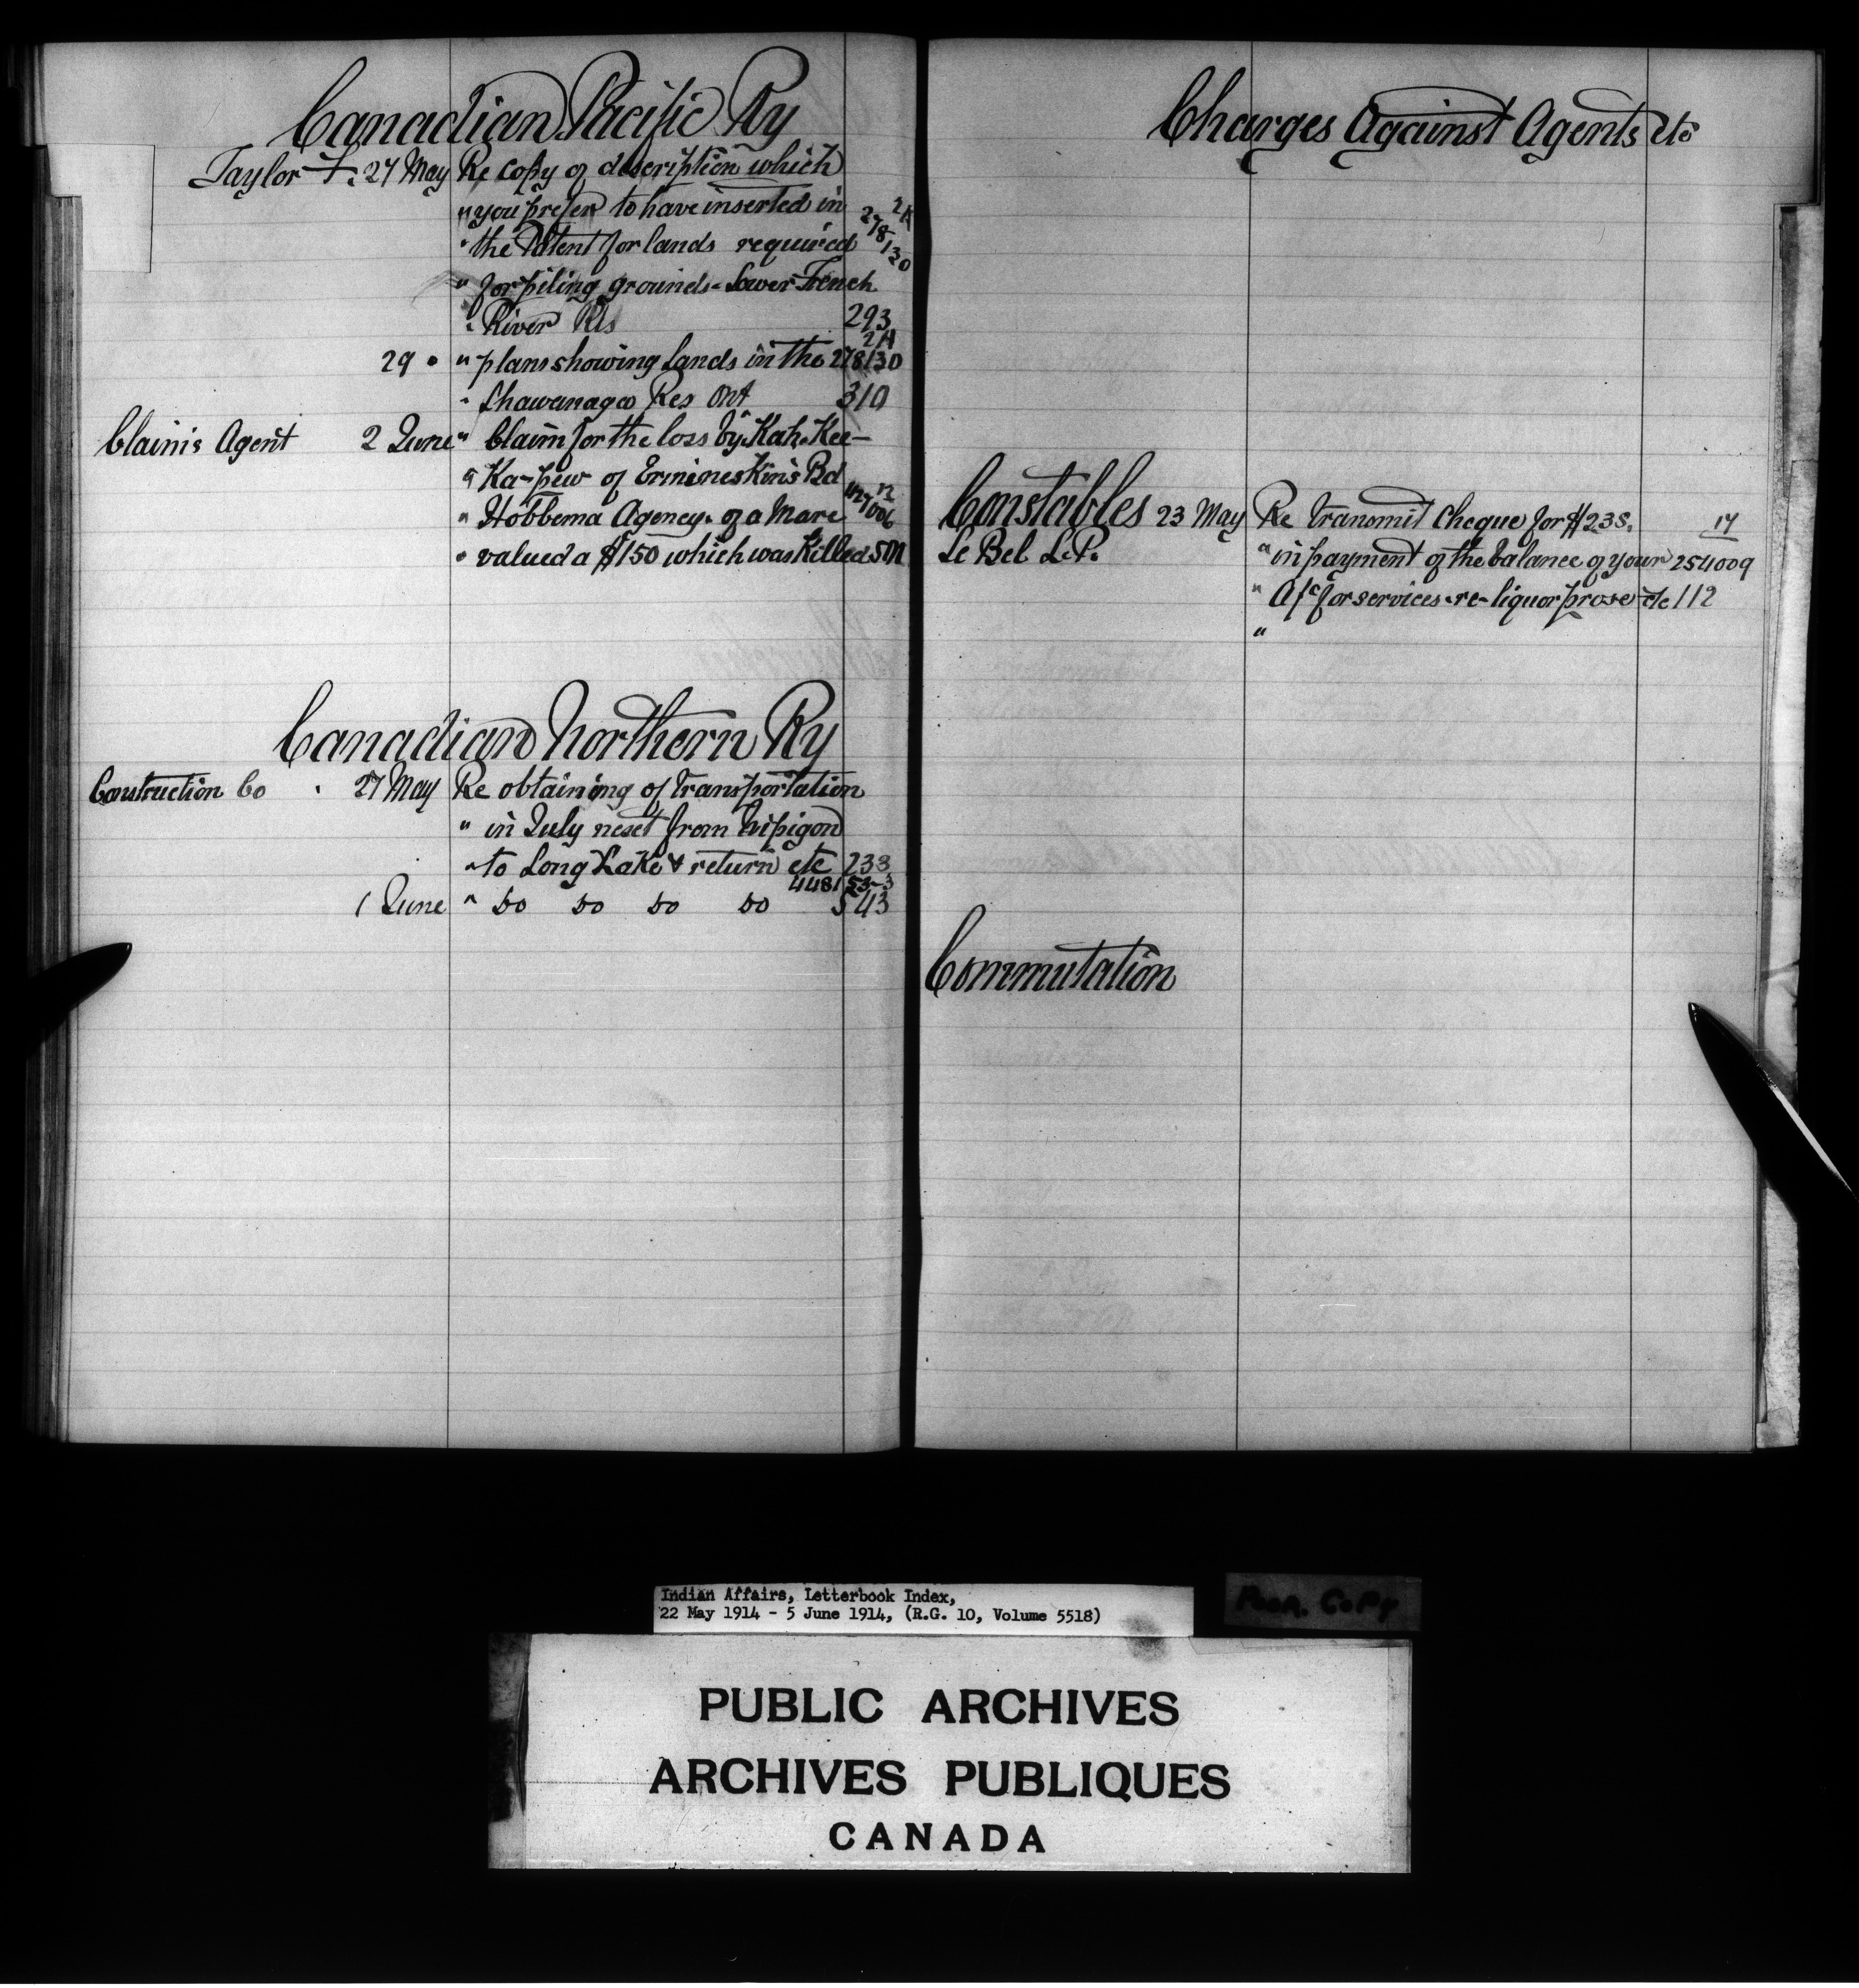 Canadian Pacific Ry
Taylor F. 27 May Re copy of description which
" you prefer to have inserted in 2A
" the Patent for lands required 278130
" for piling grounds - Lower French
" River Res 293
2A
29 " " plan showing lands in the 278130
" Shawanaga Res Ont 310
Claims Agent 2 June " Claim for the loss by Kah-Kee-
" Ka-pew of Ermineskin's Bd
" Hobbema Agency - of a Mare
" valued a $150 which was killed
Canadian Northern Ry
Construction Co 27 May Re obtaining of transportation
" in July next from Nipigon
" to Long Lake & return etc 233
448153-3
1 June " do do do do 543
Charges Against Agents etc
Constables 23 May Re transmit cheque for $238. 17
Le Bel L.P. " in payment of the balance of your 254009
" A/c for services - re - liquor prose etc 112
"
Commutation
Indian Affairs, Letterbook Index,
22 May 1914 - 5 June 1914, (R.G. 10, Volume 5518)
Poor Copy
PUBLIC ARCHIVES
ARCHIVES PUBLIQUES
CANADA